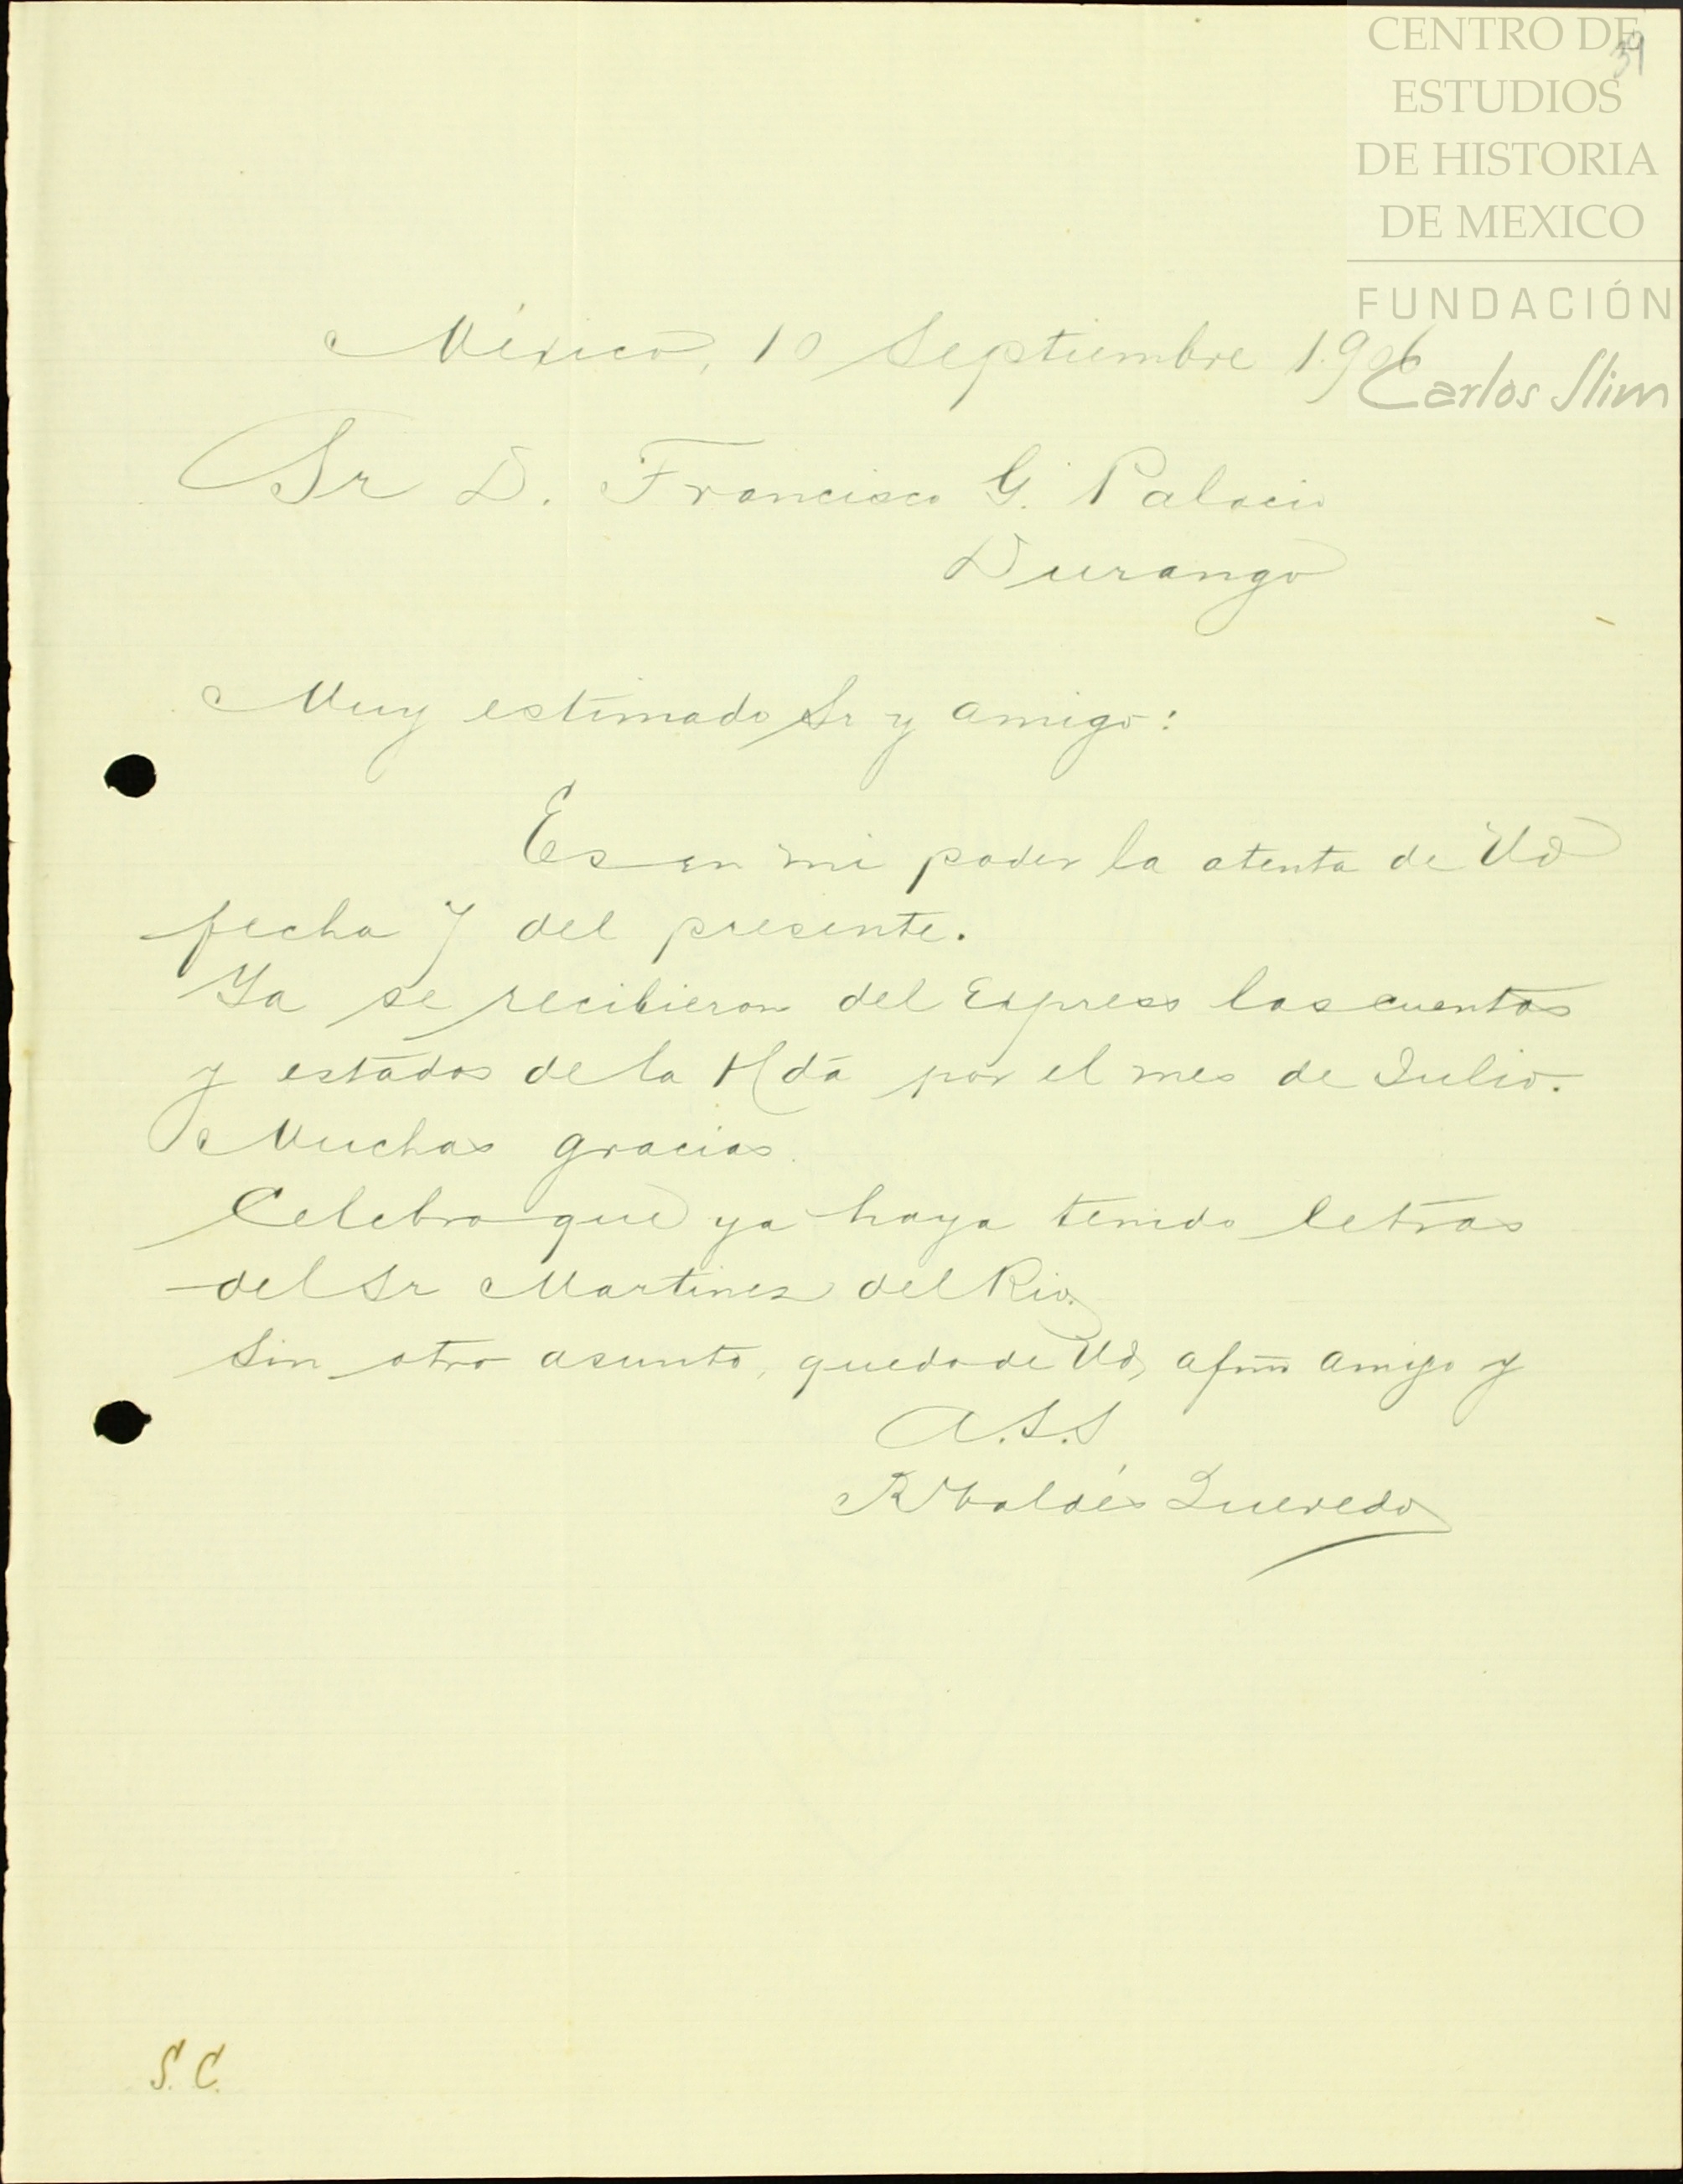 CENTRO DE
ESTUDIOS
DE HISTORIA
DE MEXICO
FUNDACIÓN
Carlos Slim
39
México, 10 Septiembre 1.906
Sr D. Francisco G. Palacio
Durango
Muy estimado Sr y amigo:
Es en mi poder la atenta de Ud
fecha 7 del presente.
Ya se recibieron del Express las cuentas
y estados de la Hda por el mes de Julio.
Muchas gracias.
Celebro que ya haya tenido letras
del Sr Martinez del Rio.
Sin otro asunto, quedo de Ud, afmo amigo y
A.S.S
R Valdés Quevedo
S. C.